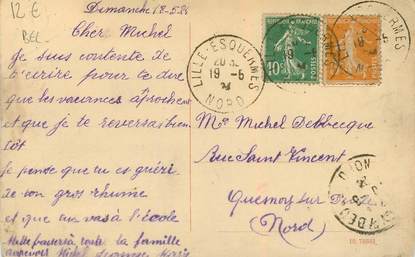 12 €
BEL
Dimanche 18-5-24
Cher Michel
Je suis contente de
t'ecrire pour te dire
que les vacances aprochent
et que je te reverrai bien
tôt
Je pense que tu es guéri
de ton gros rhume
et que tu vas à l'école
Mille baisers à toute la famille
Michel
LILLE-ESQUERMES
19-5
NORD
10c
Mr Michel Debbecque
Rue Saint Vincent
Quesnoy sur Deûle
(Nord)